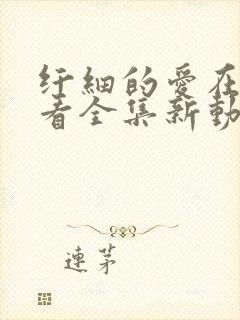 纤細的愛在
看全集新動
連茅